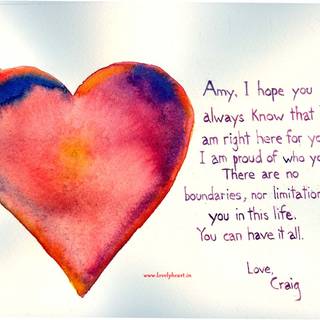 Amy, I hope you
always know that I
am right here for yo
I am proud of who yo
There are no
boundaries, nor limitation
you in this life.
You can have it all.
Love,
Craig
www.lovelyheart.in